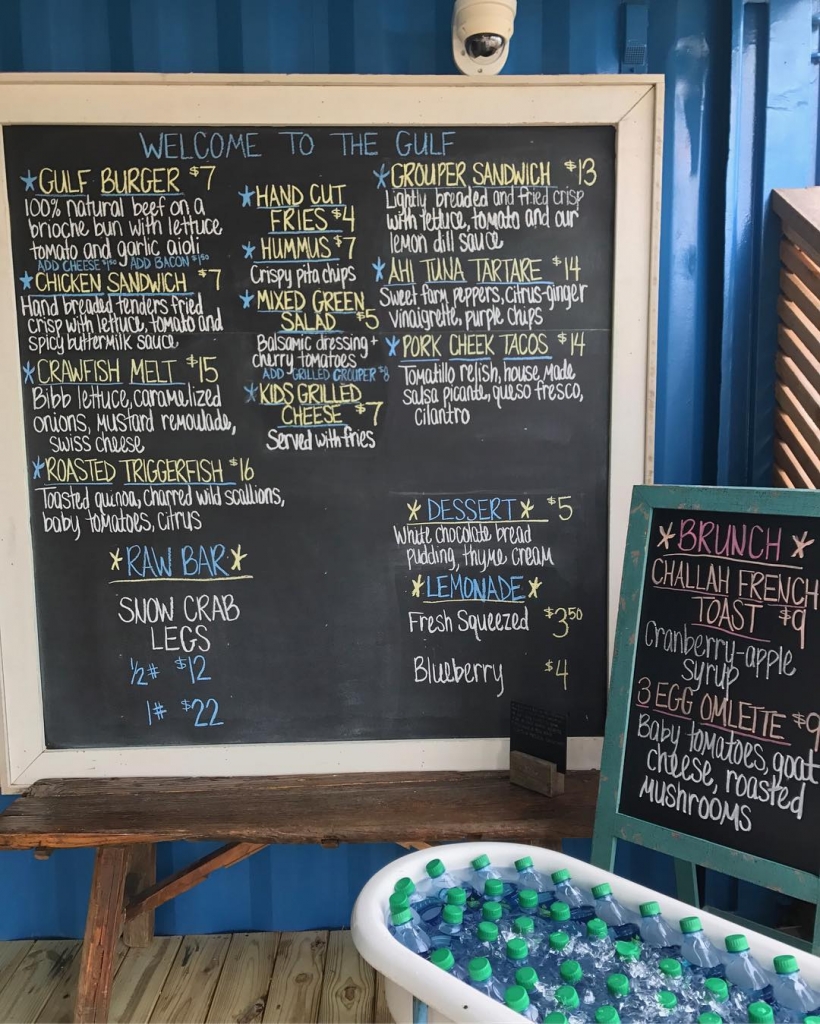 WELCOME TO THE GULF
GULF BURGER $7
100% natural beef on a
brioche bun with lettuce
tomato and garlic aioli
ADD CHEESE $1.50 ADD BACON $1.50
CHICKEN SANDWICH $7
Hand breaded tenders fried
crisp with lettuce, tomato and
spicy buttermilk sauce
CRAWFISH MELT $15
Bibb lettuce, caramelized
onions, mustard remoulade,
swiss cheese
ROASTED TRIGGERFISH $16
Toasted quinoa, charred wild scallions,
baby tomatoes, citrus
RAW BAR
SNOW CRAB
LEGS
1/2# $12
1# $22
HAND CUT
FRIES $4
HUMMUS $7
Crispy pita chips
MIXED GREEN
SALAD $5
Balsamic dressing +
cherry tomatoes
ADD GRILLED GROUPER $8
KIDS GRILLED
CHEESE $7
Served with fries
GROUPER SANDWICH $13
Lightly breaded and fried crisp
with lettuce, tomato and our
lemon dill sauce
AHI TUNA TARTARE $14
Sweet farm peppers, citrus-ginger
vinaigrette, purple chips
PORK CHEEK TACOS $14
Tomatillo relish, house made
salsa picante, queso fresco,
cilantro
DESSERT $5
White chocolate bread
pudding, thyme cream
LEMONADE
Fresh Squeezed $3.50
Blueberry $4
BRUNCH
CHALLAH FRENCH
TOAST $9
Cranberry-apple
syrup
3 EGG OMLETTE $9
Baby tomatoes, goat
cheese, roasted
mushrooms